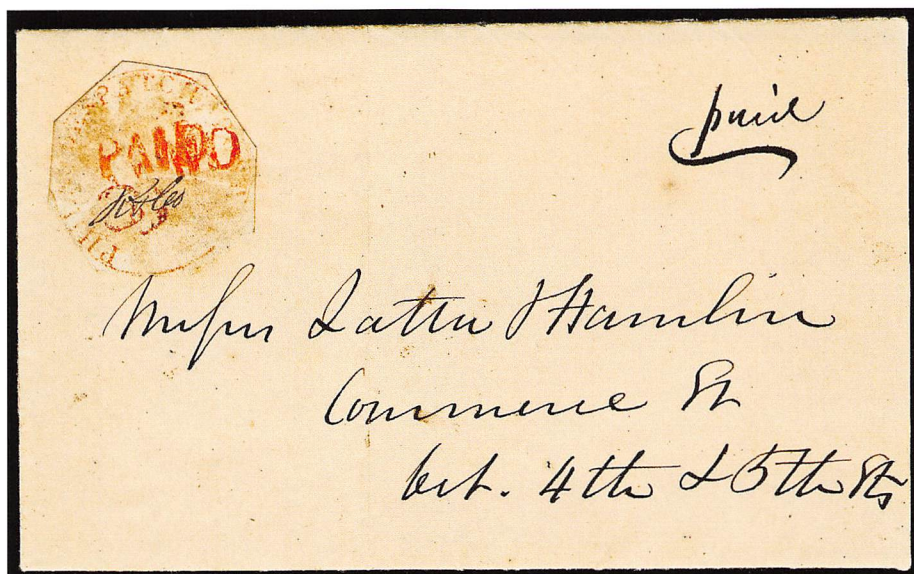 PAID
paid
Messrs Latta & Hamlin
Commerce St
bet. 4th & 5th Sts